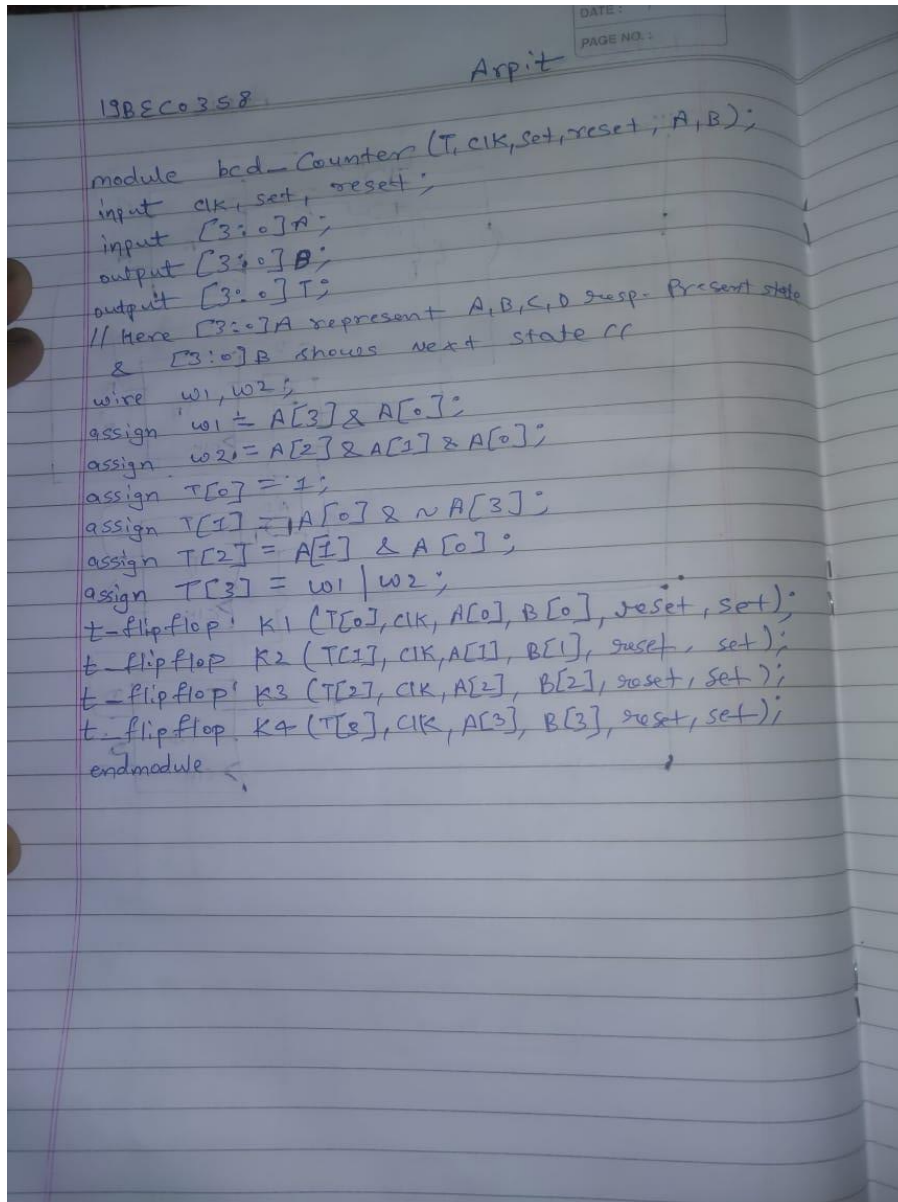 DATE :
PAGE NO. :
Arpit
19BEC0358
module bcd_Counter (T, clk, set, reset, A, B);
input clk, set, reset;
input [3:0]A;
output [3:0]B;
output [3:0]T;
// Here [3:0]A represent A,B,C,D resp. Present state
& [3:0]B shows Next state
wire w1, w2;
assign w1 = A[3] & A[0];
assign w2 = A[2] & A[1] & A[0];
assign T[0] = 1;
assign T[1] = A[0] & ~A[3];
assign T[2] = A[1] & A[0];
assign T[3] = w1 | w2;
t_flipflop K1 (T[0], clk, A[0], B[0], reset, set);
t_flipflop K2 (T[1], clk, A[1], B[1], reset, set);
t_flipflop K3 (T[2], clk, A[2], B[2], reset, set);
t_flipflop K4 (T[3], clk, A[3], B[3], reset, set);
endmodule